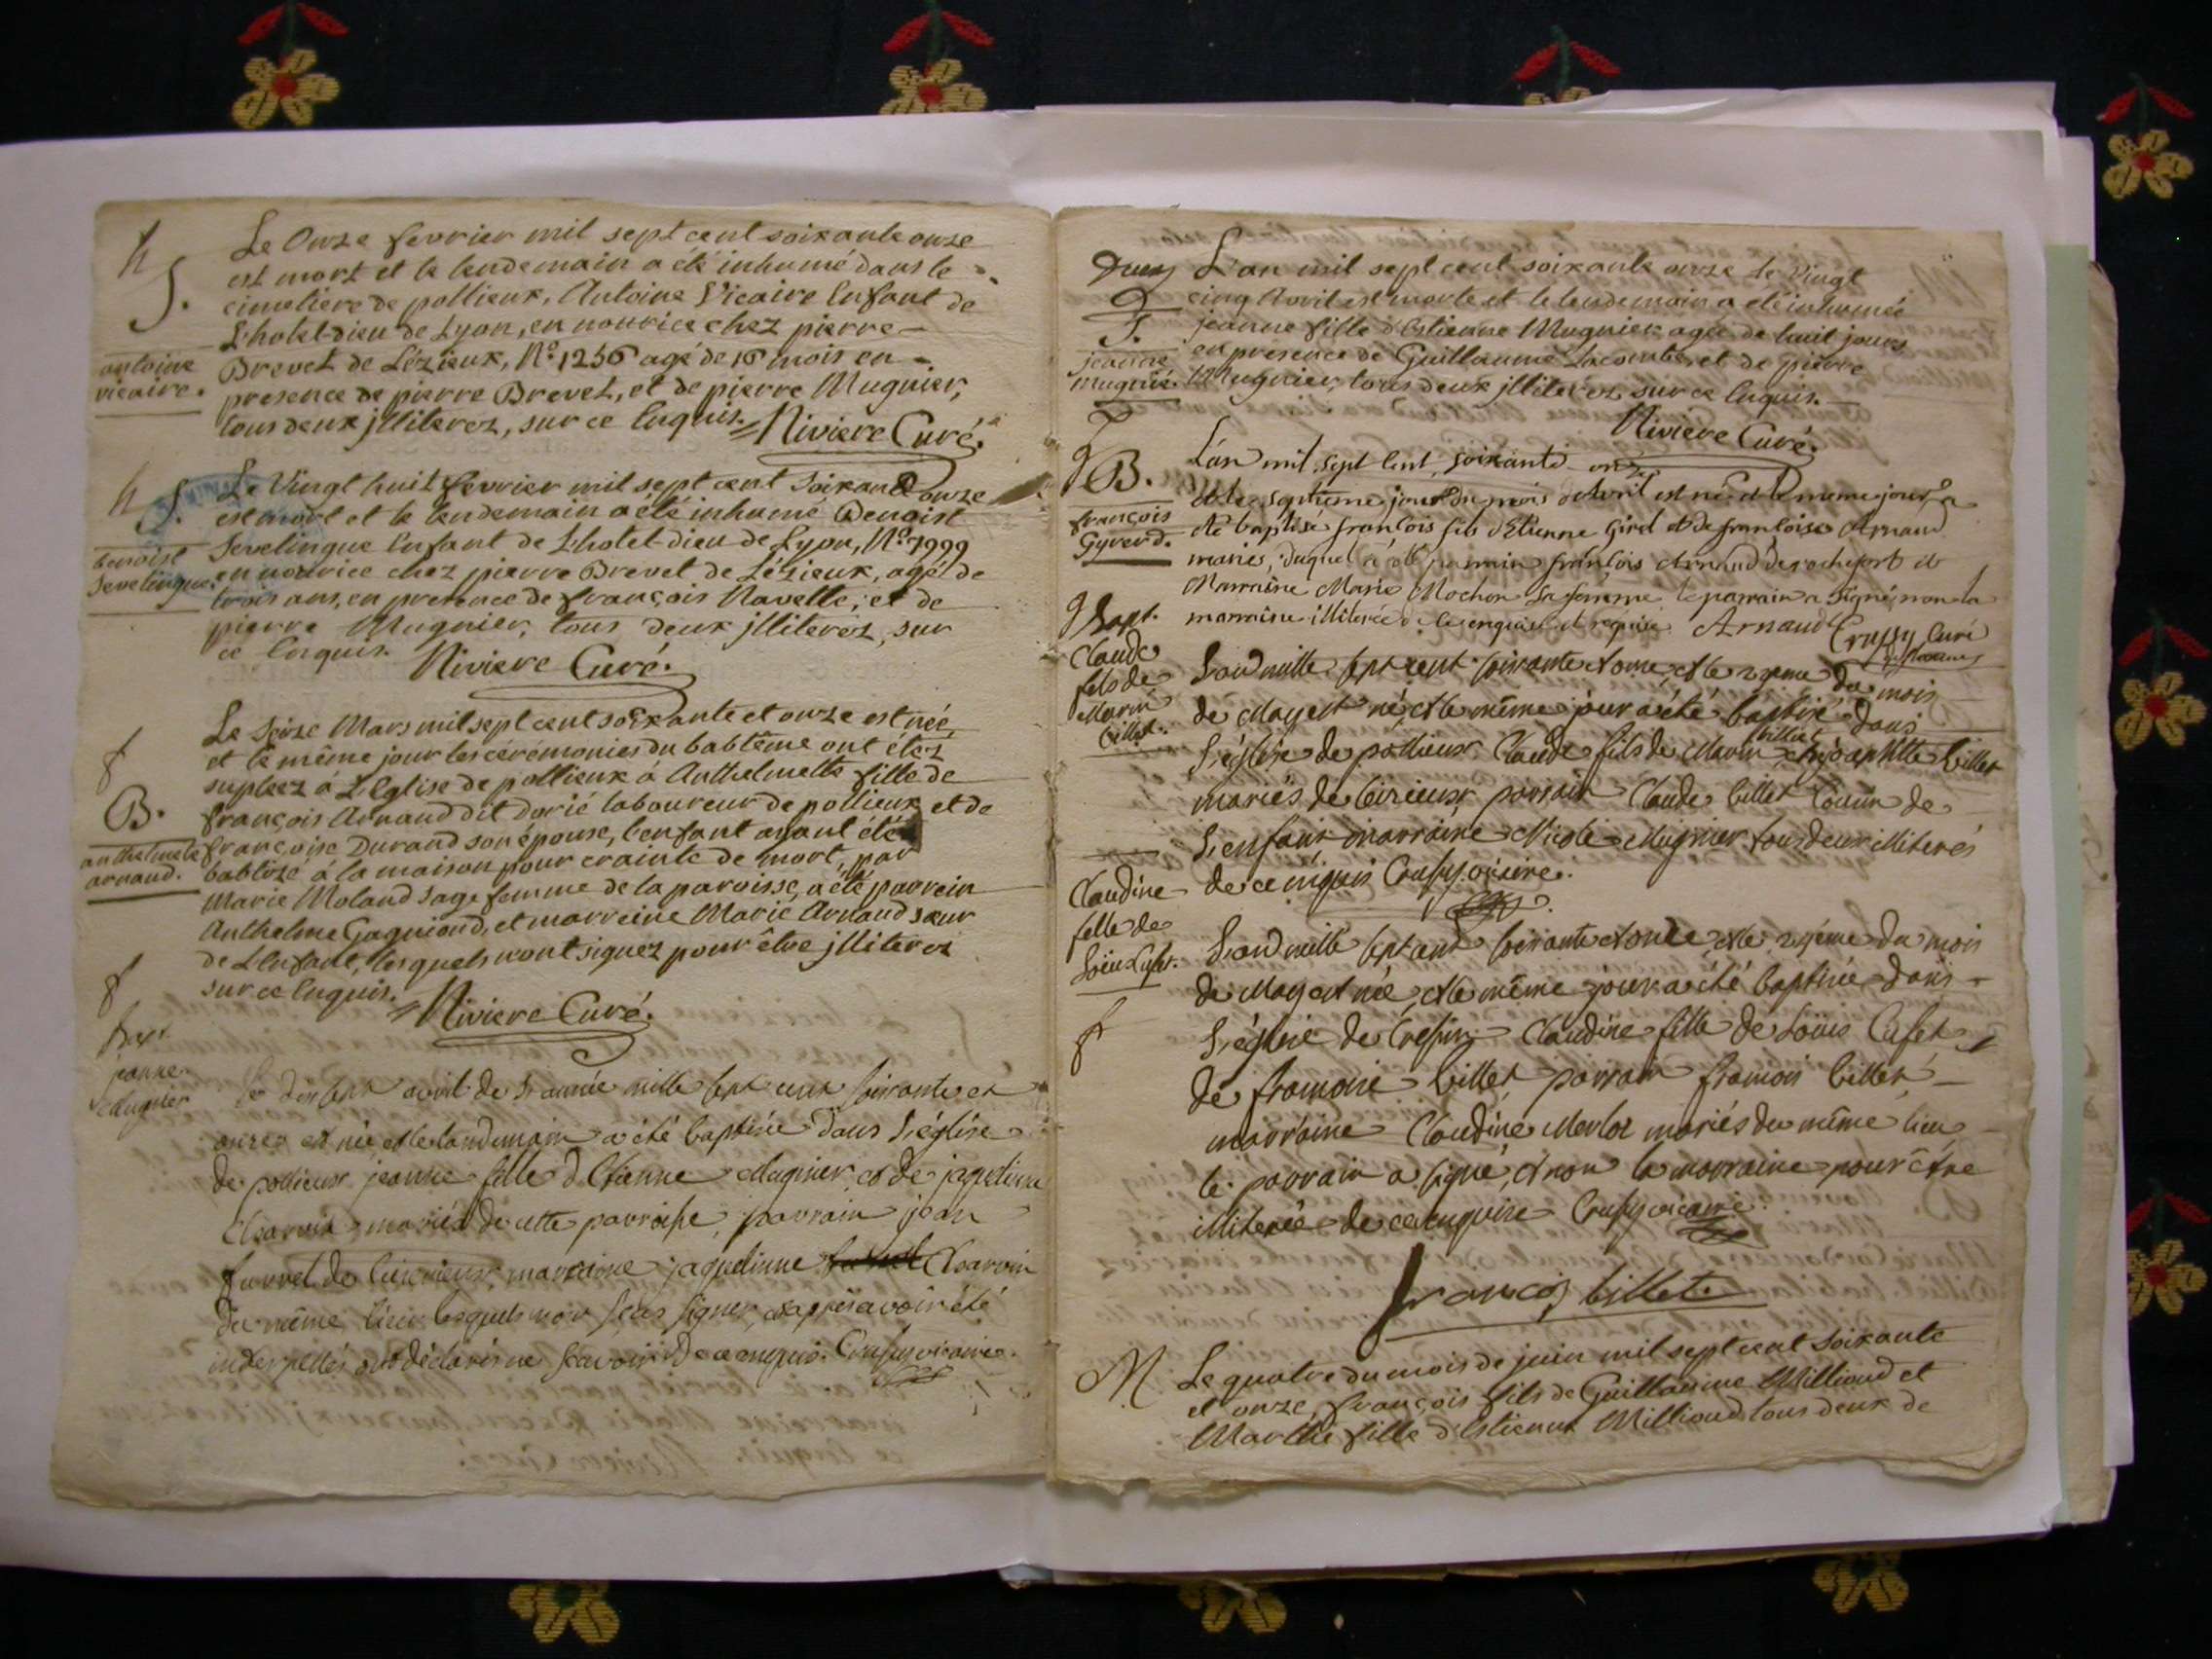 h
S.
antoine
vicaire.
Le Onze fevrier mil sept cent soixante onze
est mort et le lendemain a été inhumé dans le
cimetiere de pollieux, Antoine Vicaire Enfant de
L'hotel-dieu de Lyon, en nourice chez pierre
Brevet de Lézieux, No. 1256 agé de 16 mois en
presence de pierre Brevet, et de pierre Mugnier,
tous deux jlliterez, sur ce Enquis. Riviere Curé.
h
S.
benoist
Sevelingue.
Le Vingt huit fevrier mil sept cent soixante onze
est mort et le lendemain a été inhumé Benoist
Sevelingue Enfant de L'hotel-dieu de Lyon, No. 1999
en nourice chez pierre Brevet de Lézieux, agé de
trois ans, en presence de françois Navelle, et de
pierre Mugnier, tous deux jlliterez, sur
ce Enquis. Riviere Curé.
f
B.
anthelmete
arnaud.
Le Seize Mars mil sept cent soixante et onze est née,
et le même jour les cérémonies du babtême ont étez
supleez à L'Eglise de pollieux à Anthelmette fille de
françois Arnaud dit Dorié laboureur de pollieux et de
françoise Durand son épouse, l'enfant ayant été
babtizé à la maison pour crainte de mort, par
Marie Moland sage femme de la paroisse, a été parrein
Anthelme Gagniond, et marreine Marie Arnaud sœur
de L'Enfant, lesquels n'ont signez pour être jlliterez
sur ce Enquis. Riviere Curé.
f
Bapt.
jeanne
Mugnier
Le dix sept avril de l'année mille sept cent soixante et
onze est née, et le landemain a été baptisée dans l'église
de pollieux jeanne fille d'Etienne Mugnier et de jaqueline
Charvin mariés de cette parroisse, parrain jean
furrel de marraine jaquelinne Charvin
du même lieu lesquels non signer, et apres avoir été
interpellés ont déclarés ne sçavoir de ce enquis. Crussy vicaire.
S.
jeanne
Mugnié.
L'an mil sept cent soixante onze le Vingt
cinq Avril est morte et le lendemain a été inhumée
jeanne fille d'Estienne Mugnier agée de huit jours
en presence de Guillaume Lacombe, et de pierre
Mugnier, tous deux jlliterez, sur ce Enquis.
Riviere Curé.
g
B.
françois
Gyverd.
L'an mil sept cent soixante onze
et le septieme jour du mois d'Avril est né et le meme jour a
été baptisé françois fils d'Etienne Girel et de françoise Arnaud
mariés, duquel a été parrain françois Arnaud de rochefort et
Marraine Marie Mochon sa femme le parrain a signé non la
marraine illiterée de ce enquise et requise. Arnaud Crussy Curé
g
Bapt.
Claude
fils de
Marin
billet.
L'an mille sept cent soixante et onze, et le 27eme du mois
de May est né, et le même jour a été baptisé dans
l'église de pollieux Claude fils de Marin billiet et josephtte billet
mariés de parrain Claude billet Cousin de
l'enfant marraine Nicole Mugnier tous deux illiterés
de ce enquis Crussy vicaire.
Claudine
fille de
Loüis Cuset.
f
L'an mille sept cent soixante et onze, et le 27éme du mois
de May est née, et le même jour a été baptisée dans
l'église de Cressin Claudine fille de Loüis Cuset
de françoise billet parrain françois billet
marraine Claudine Merloz mariés du même lieu
le parrain a signé, et non la marraine pour être
illiterée de ce enquise Crussy vicaire.
françois billet.
M.
Le quatre du mois de juin mil sept cent soixante
et onze, françois fils de Guillaume Millioud et
Marthe fille d'Estienne Millioud tous deux de